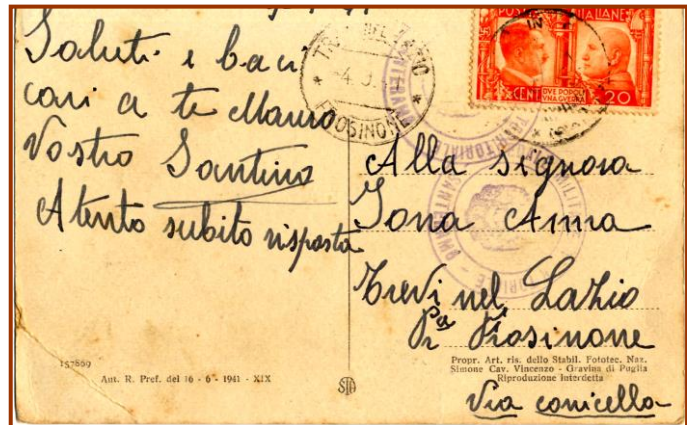 Saluti e baci
cari a te Mauro
Vostro Santino
Atento subito risposta
TREVI NEL LAZIO
FROSINONE
POSTE ITALIANE
CENT 20
DVE POPOLI
VNA GVERRA
TERRITORIALE
Alla Signora
Iona Anna
Trevi nel Lazio
Pa Frosinone
Via conicella
157869
Aut. R. Pref. del 16 - 6 - 1941 - XIX
Propr. Art. ris. dello Stabil. Fototec. Naz.
Simone Cav. Vincenzo - Gravina di Puglia
Riproduzione interdetta